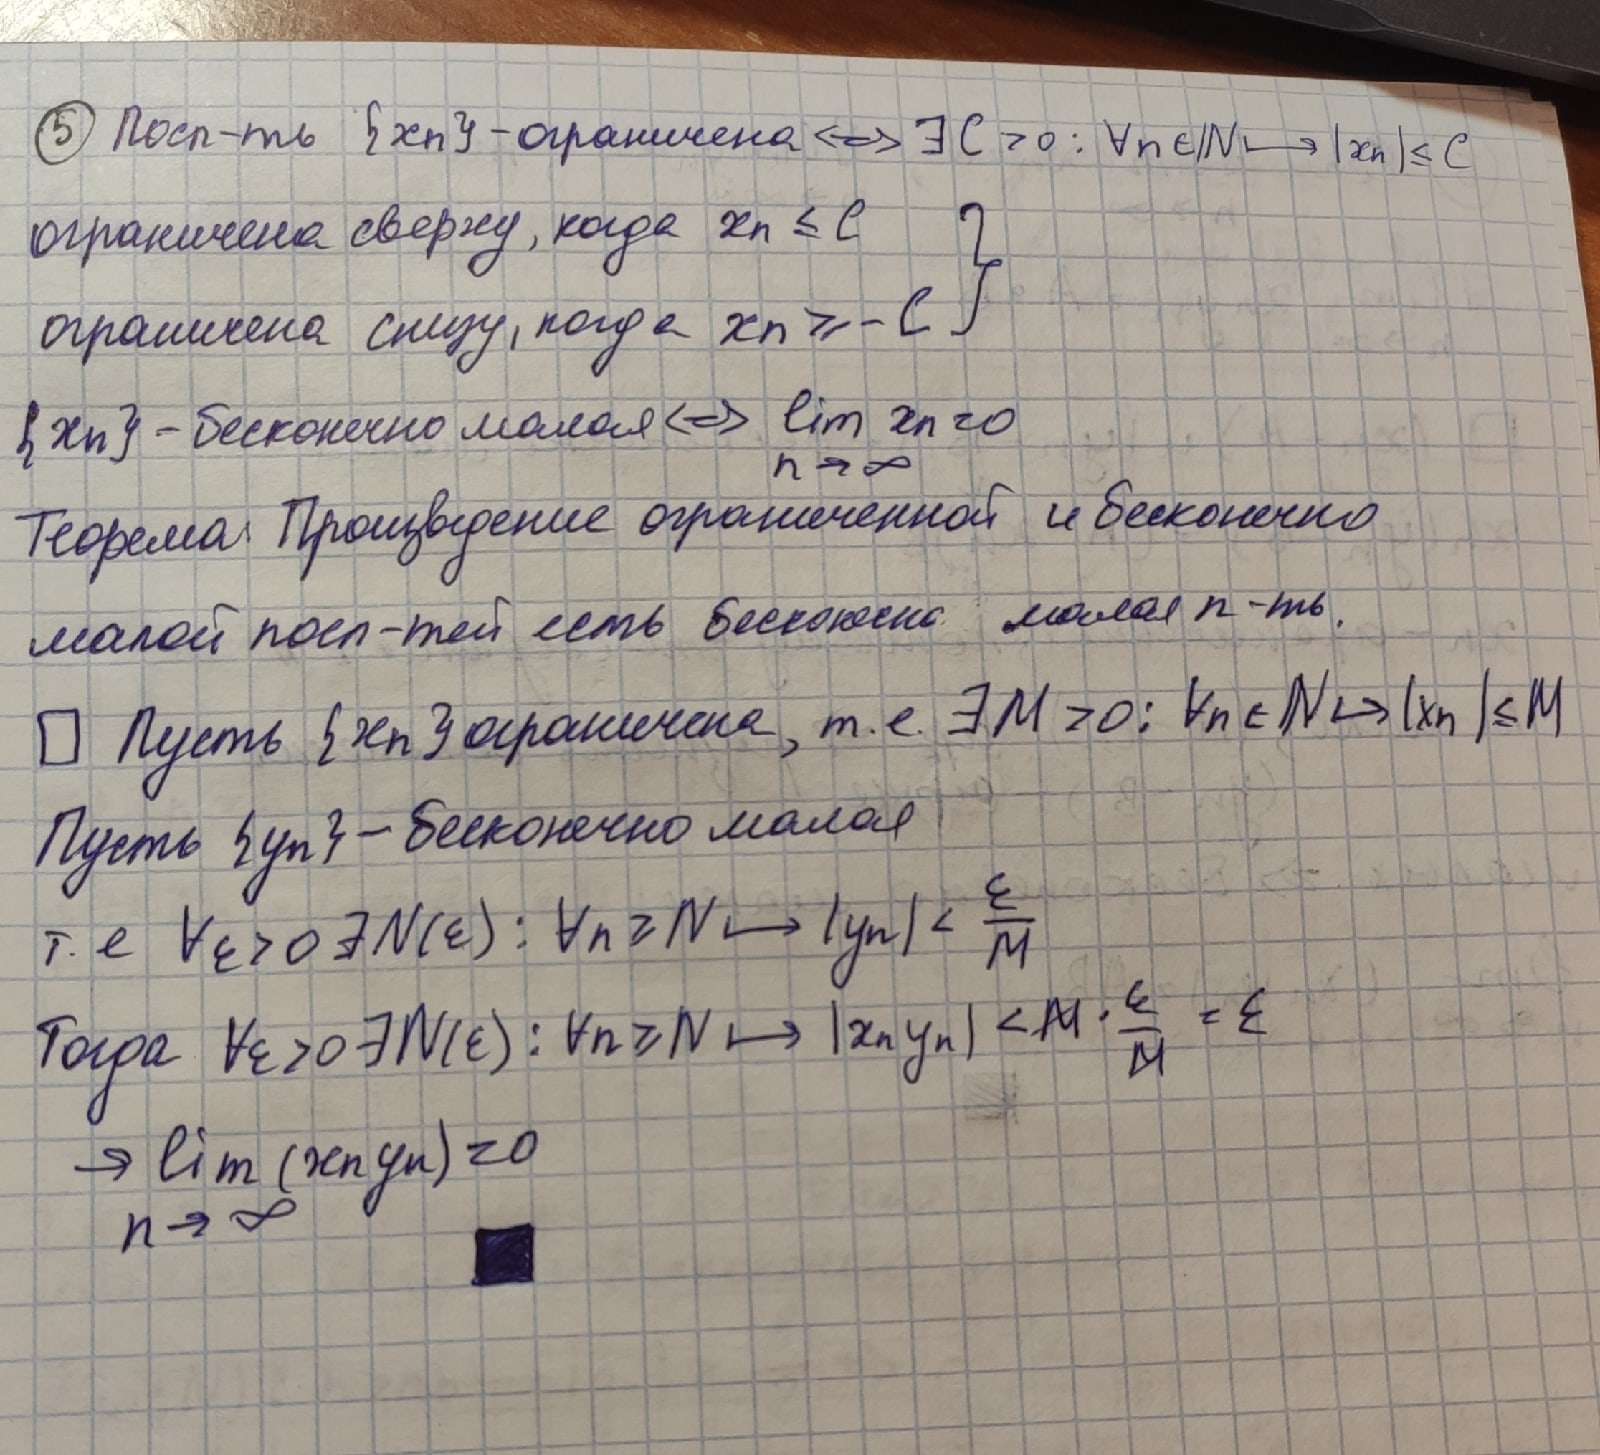 ⑤ Посл-ть {xn} - ограничена <=> ∃C > 0 : ∀n∈ℕ ↦ |xn| ≤ C
ограничена сверху, когда xn ≤ C }
ограничена снизу, когда xn ≥ -C
{xn} - бесконечно малая <=> lim xn = 0
n → ∞
Теорема: Произведение ограниченной и бесконечно
малой посл-тей есть бесконечно малая п-ть.
□ Пусть {xn} ограничена, т.е. ∃M > 0 : ∀n∈ℕ ↦ |xn| ≤ M
Пусть {yn} - бесконечно малая
т.е ∀ε > 0 ∃N(ε) : ∀n ≥ N ↦ |yn| < ε/M
Тогда ∀ε > 0 ∃N(ε) : ∀n ≥ N ↦ |xn yn| < M · ε/M = ε
→ lim (xn yn) = 0
n → ∞
■